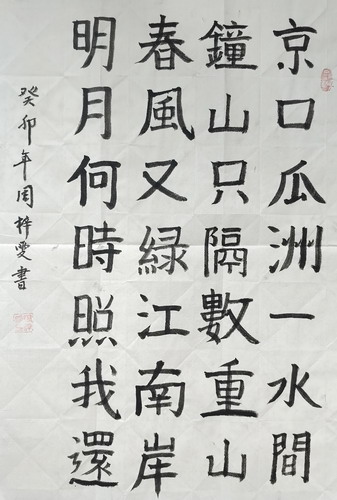 京口瓜洲一水間
鐘山只隔數重山
春風又緑江南岸
明月何時照我還
癸卯年周梓雯書